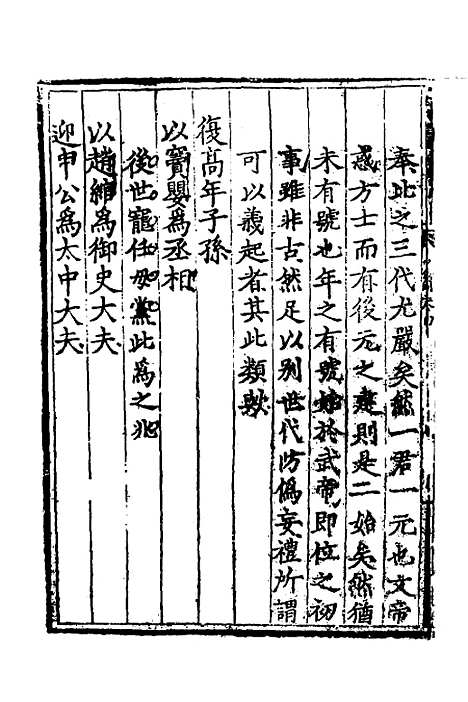 奉比之三代尤嚴矣然一君一元也文帝
惑方士而有後元之建則是二始矣然猶
未有號也年之有號始於武帝即位之初
事雖非古然足以別世代防偽妄禮所謂
可以義起者其此類歟
復高年子孫
以竇嬰為丞相
後世寵任毋黨此為之兆
以趙綰為御史大夫
迎申公為太中大夫